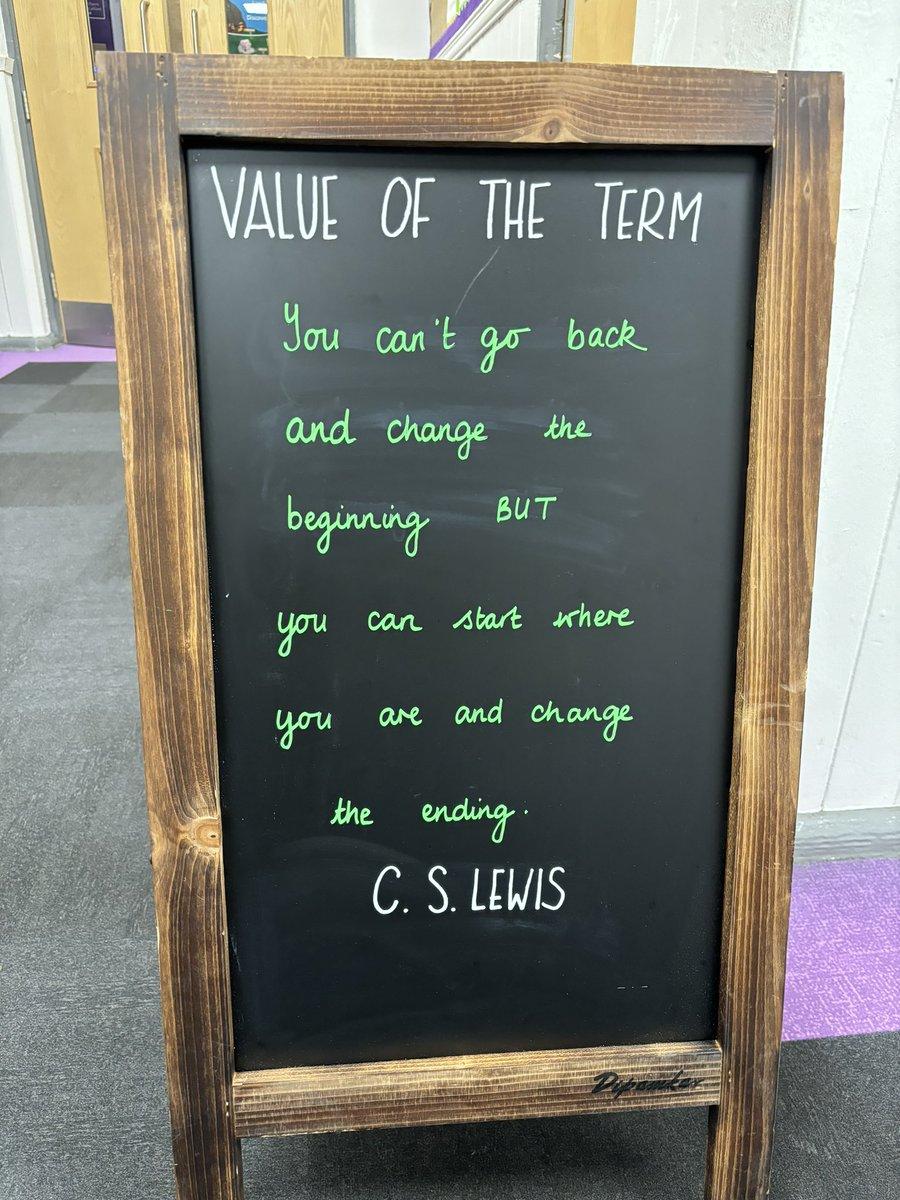 Discover
VALUE OF THE TERM
You can't go back
and change the
beginning BUT
you can start where
you are and change
the ending.
C. S. LEWIS